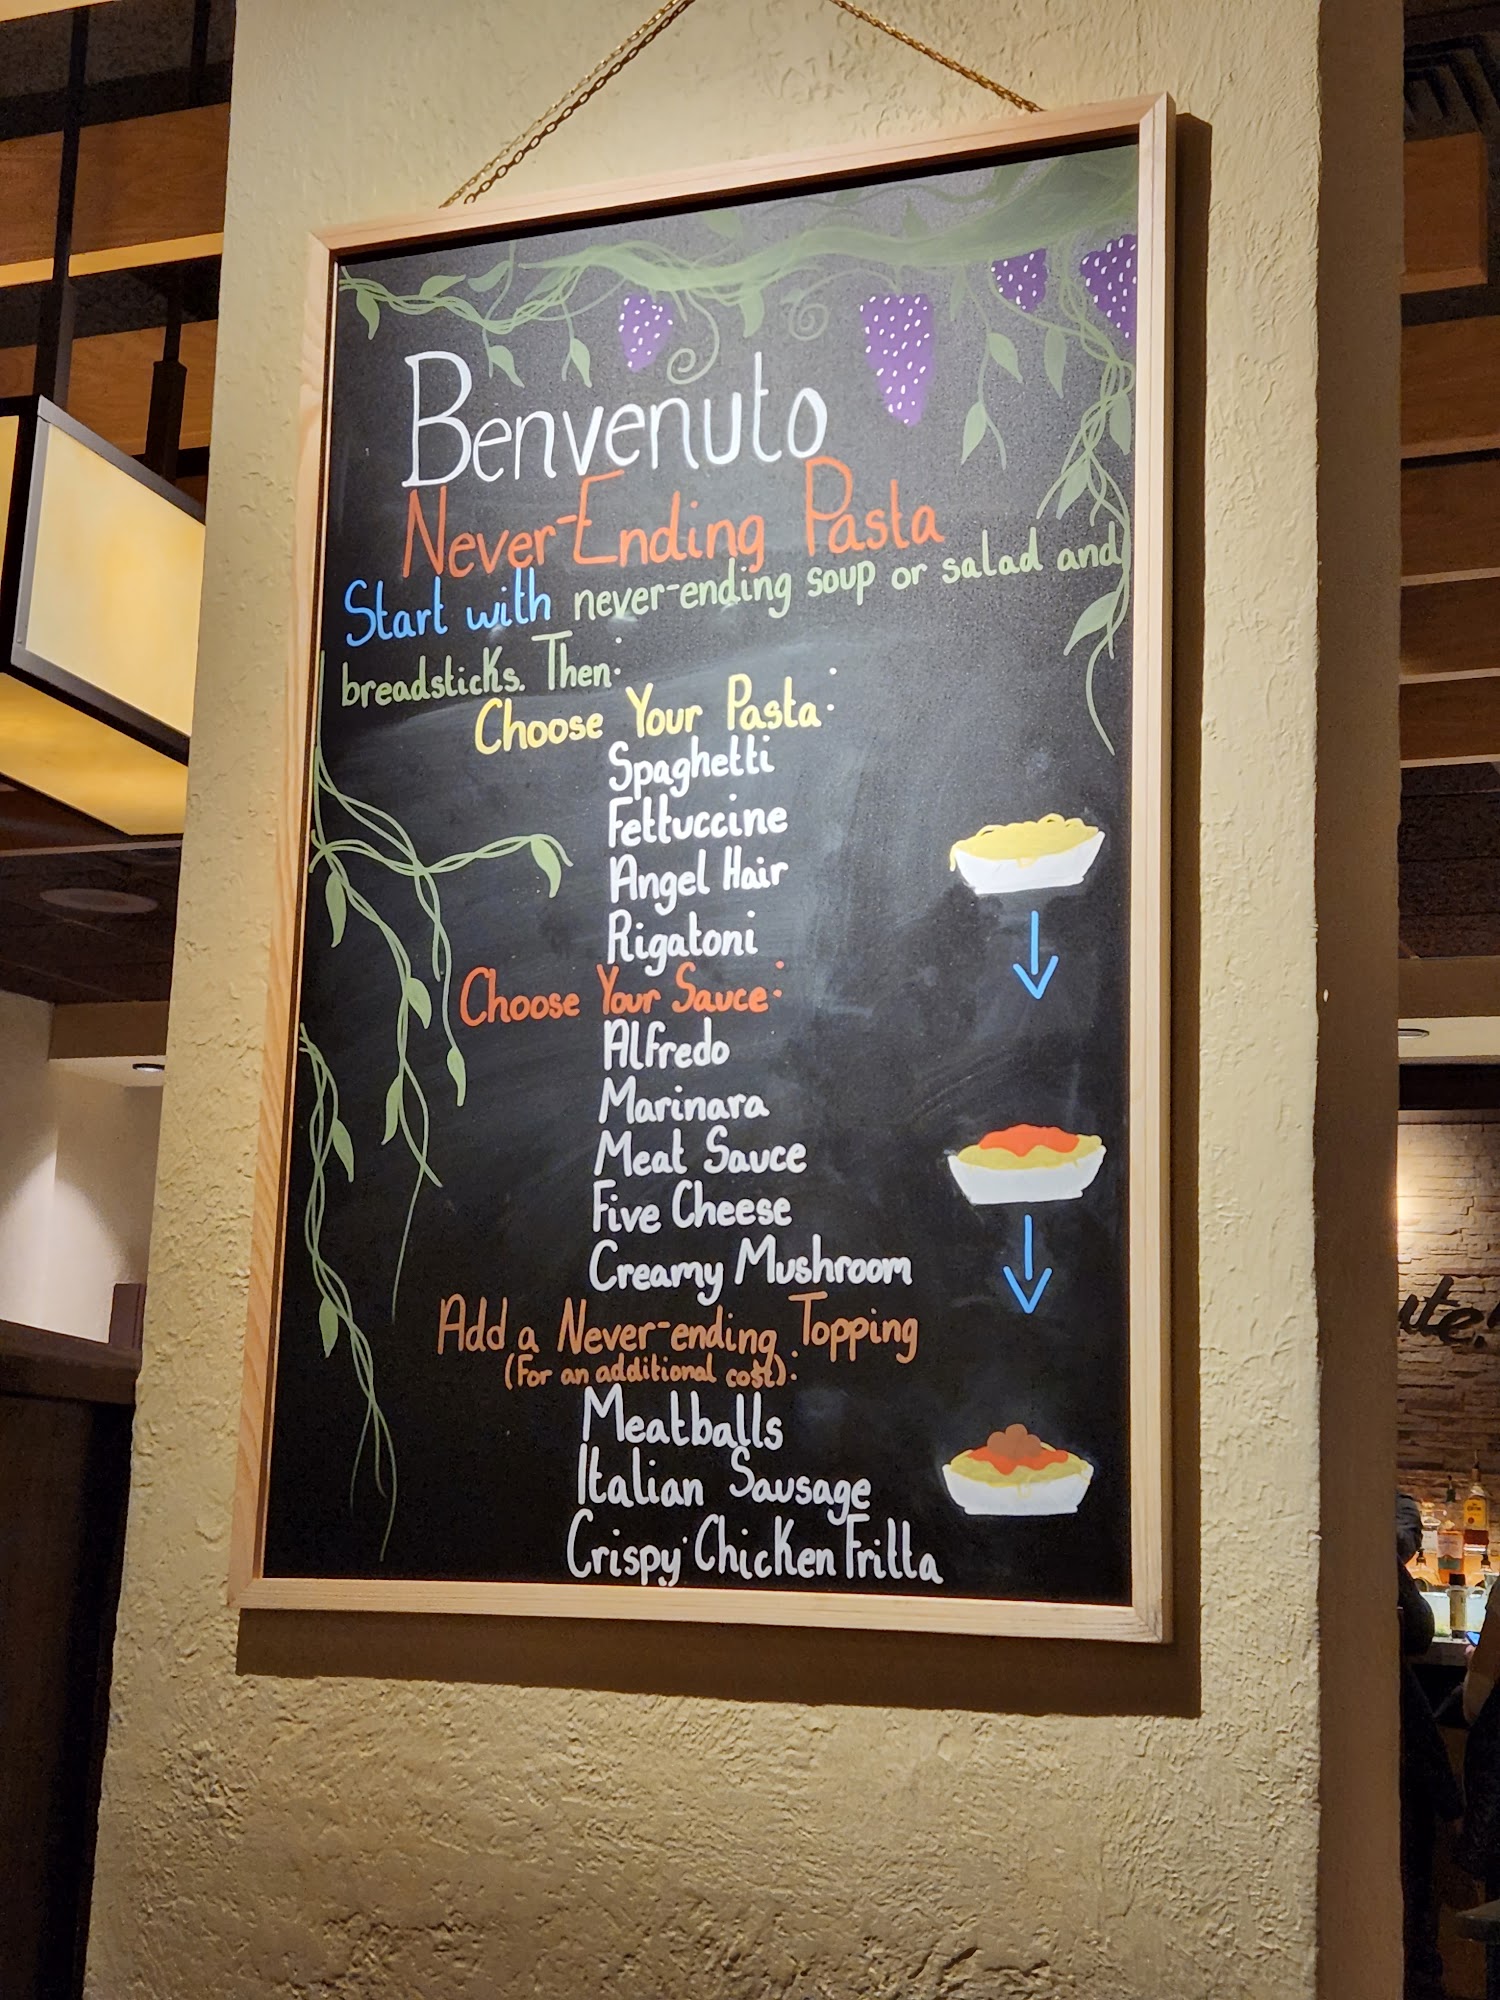 Benvenuto
Never-Ending Pasta
Start with never-ending soup or salad and
breadsticks. Then:
Choose Your Pasta:
Spaghetti
Fettuccine
Angel Hair
Rigatoni
Choose Your Sauce:
Alfredo
Marinara
Meat Sauce
Five Cheese
Creamy Mushroom
Add a Never-ending Topping
(For an additional cost):
Meatballs
Italian Sausage
Crispy Chicken Fritta